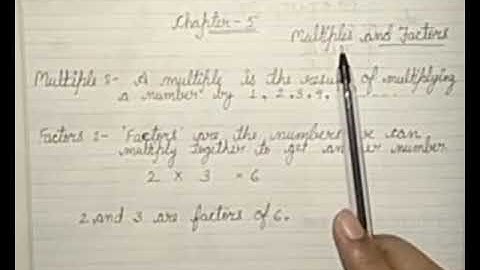 Chapter - 5
Multiples and Factors
Multiple :- A multiply is the result of multiplying
a number by 1, 2, 3, 4, ......
Factors :- 'Factors' are the numbers we can
multiply together to get another number
2 × 3 = 6
2 and 3 are factors of 6.